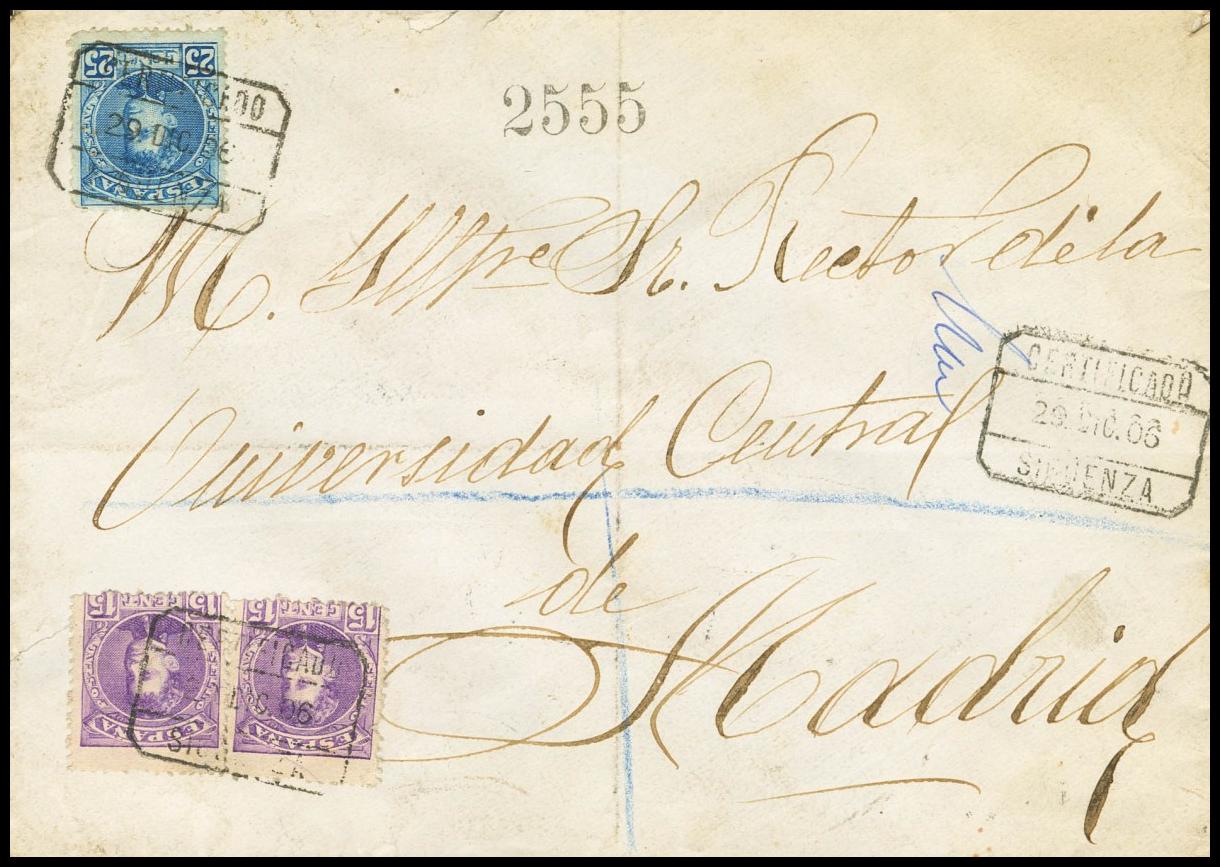 25 25
CENTS
ESPAÑA
CERTIFICADO
29 DIC. 06
2555
M. Y Illtre Sr. Rector de la
Universidad Central
de
Madrid
CERTIFICADO
29. DIC. 06
SIGÜENZA
15 15
CENTS
ESPAÑA
15 15
CENTS
ESPAÑA
DIC. 06